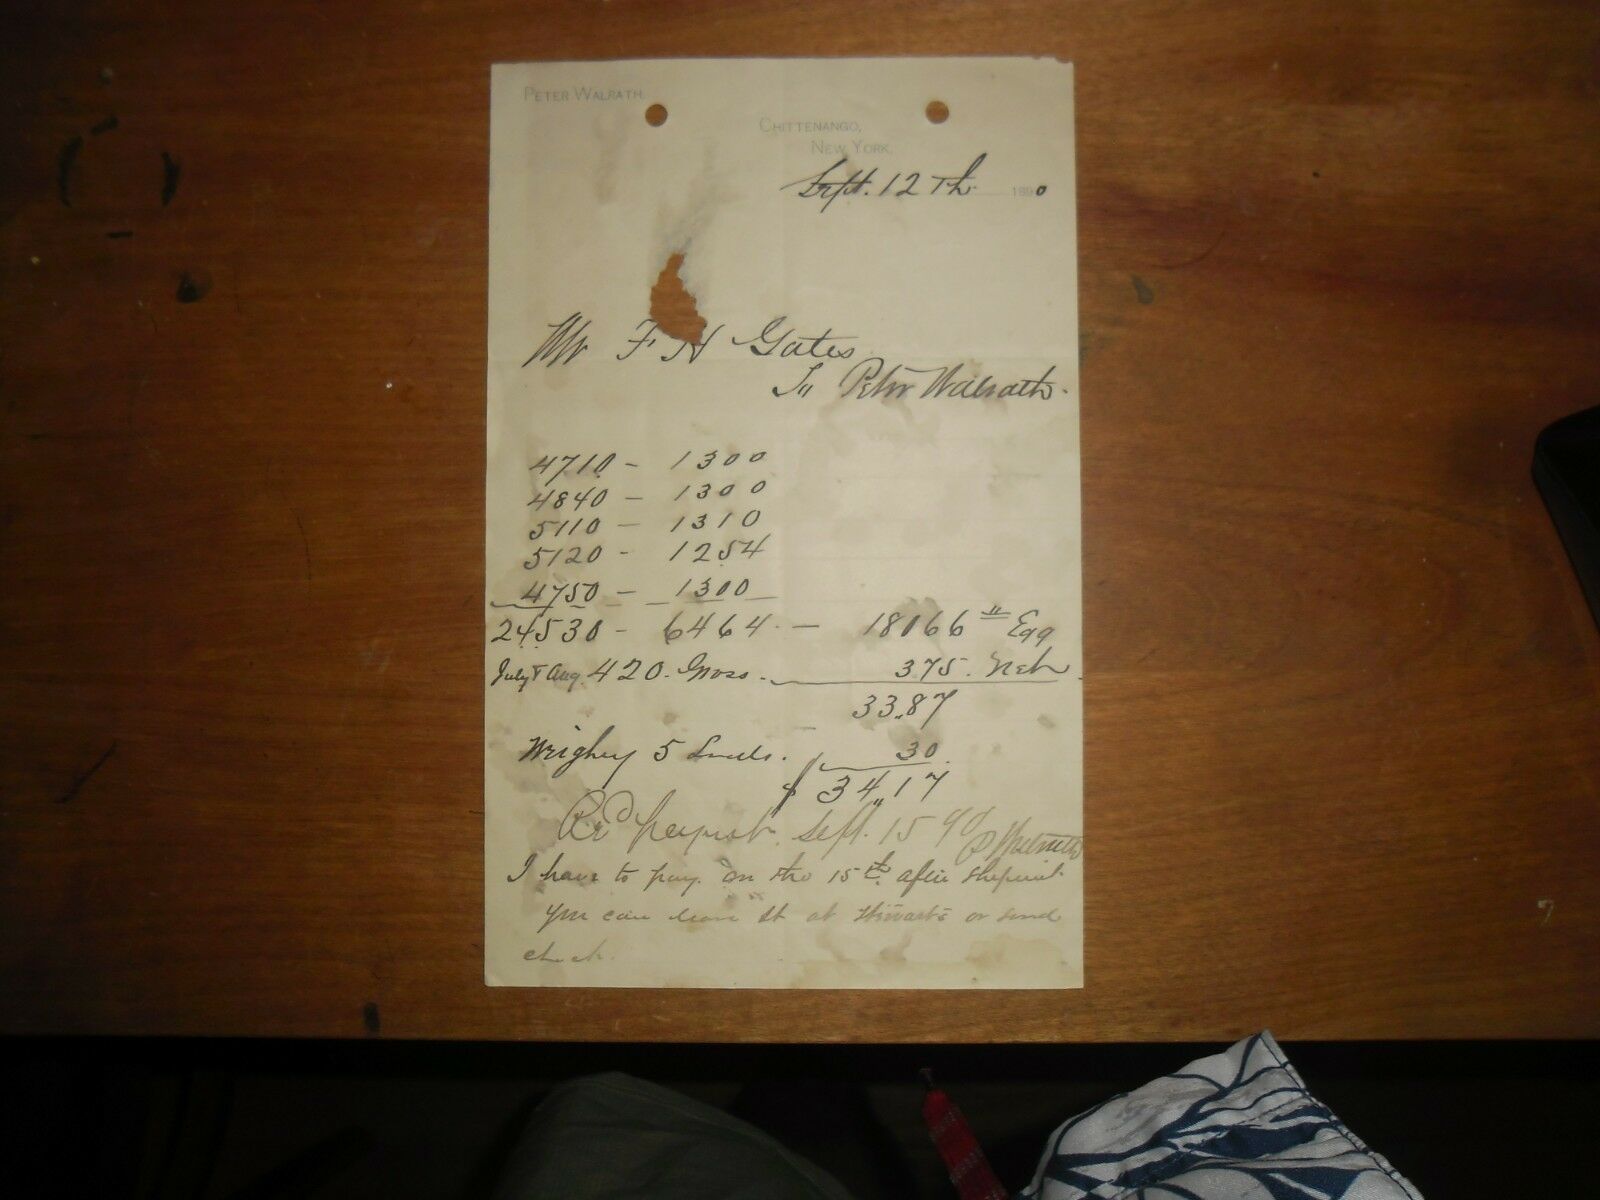 PETER WALRATH.
CHITTENANGO,
NEW YORK.
Sept. 12Th 1890
Mr F H Gates
To Peter Walrath.
4710 - 1300
4840 - 1300
5110 - 1310
5120 - 1254
4750 - 1300
24530 - 6464 - 18066 " Egg
July & Aug. 420. Gross. 375. Net
33.87
Weighing 5 Loads. 30
$ 34,17
Rec'd Sept. 15 90 P Walrath
I have to pay on the 15th after
you can leave it at Stewarts or send
check.